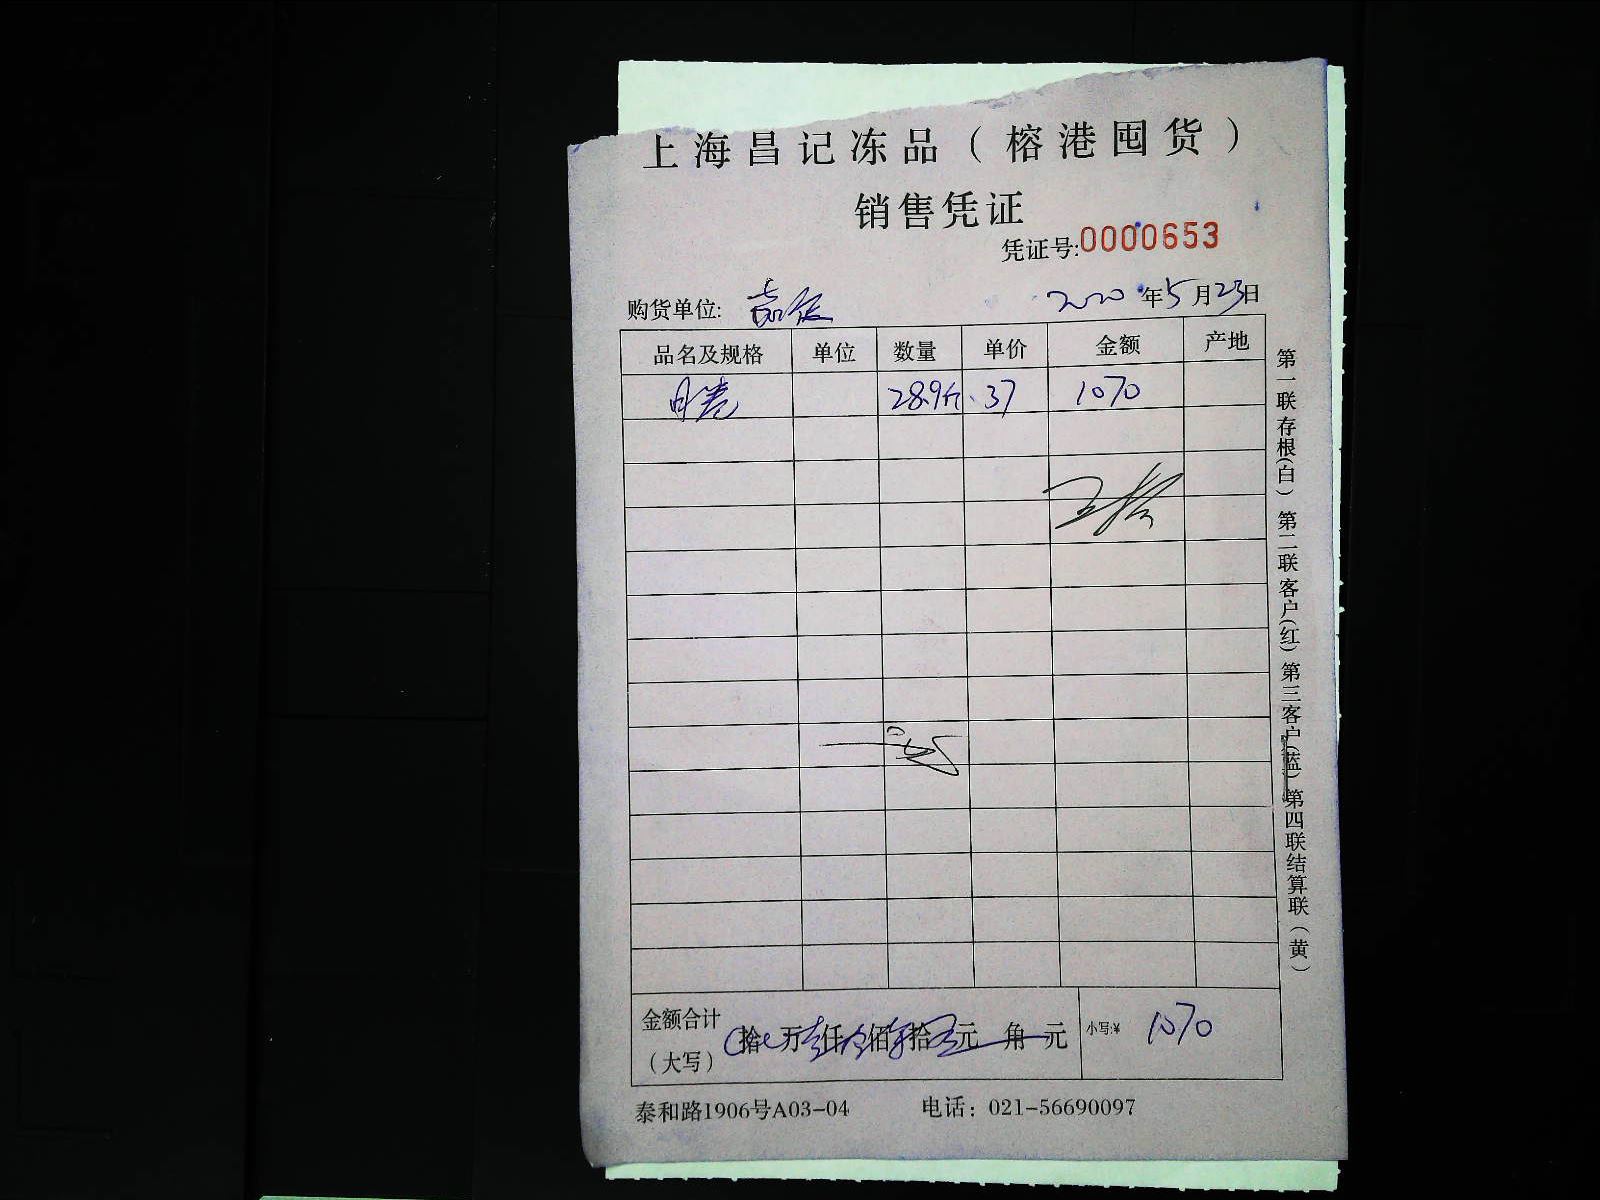 上海昌记冻品（榕港囤货）
销售凭证
凭证号:0000653
购货单位: 2020年5月23日
品名及规格 单位 数量 单价 金额 产地
28.9斤 37 1070
金额合计（大写） 拾 万 仟 佰 拾 元 角 元 小写:¥ 1070
泰和路1906号A03-04 电话：021-56690097
第一联存根(白) 第二联客户(红) 第三客户(蓝) 第四联结算联(黄)